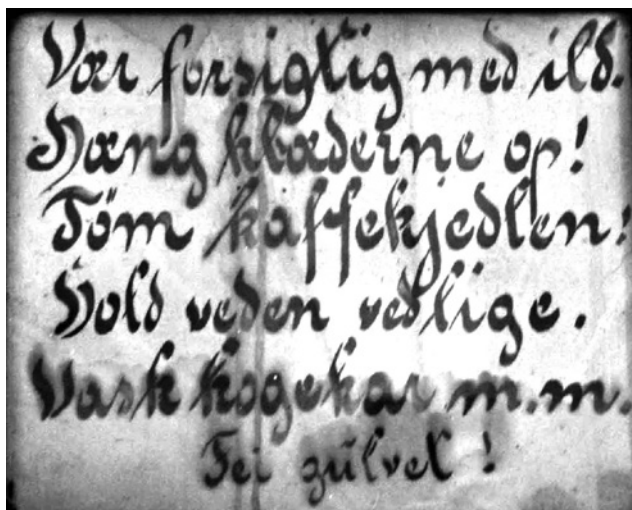 Vær forsigtig med ild.
Hæng klæderne op!
Töm kaffekjedlen!
Hold veden vedlige.
Vask kogekar m.m.
Fei gülvet!